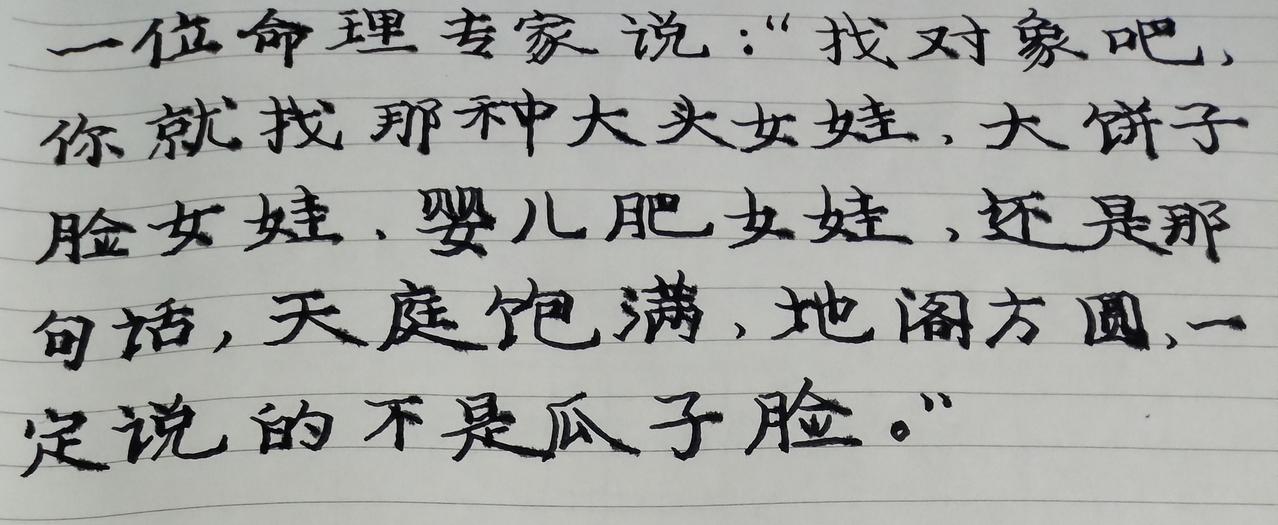 一位命理专家说："找对象吧，
你就找那种大头女娃，大饼子
脸女娃、婴儿肥女娃，还是那
句话，天庭饱满，地阁方圆，一
定说的不是瓜子脸。"